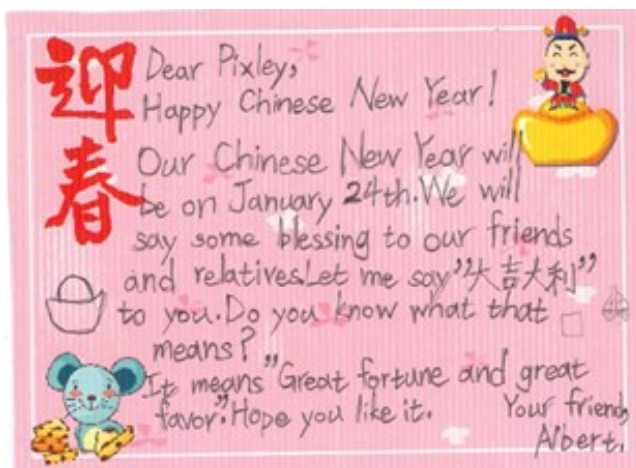 迎春
Dear Pixley,
Happy Chinese New Year!
Our Chinese New Year will
be on January 24th. We will
say some blessing to our friends
and relatives. Let me say "大吉大利"
to you. Do you know what that
means?
It means "Great fortune and great
favor". Hope you like it.
Your friend,
Albert.